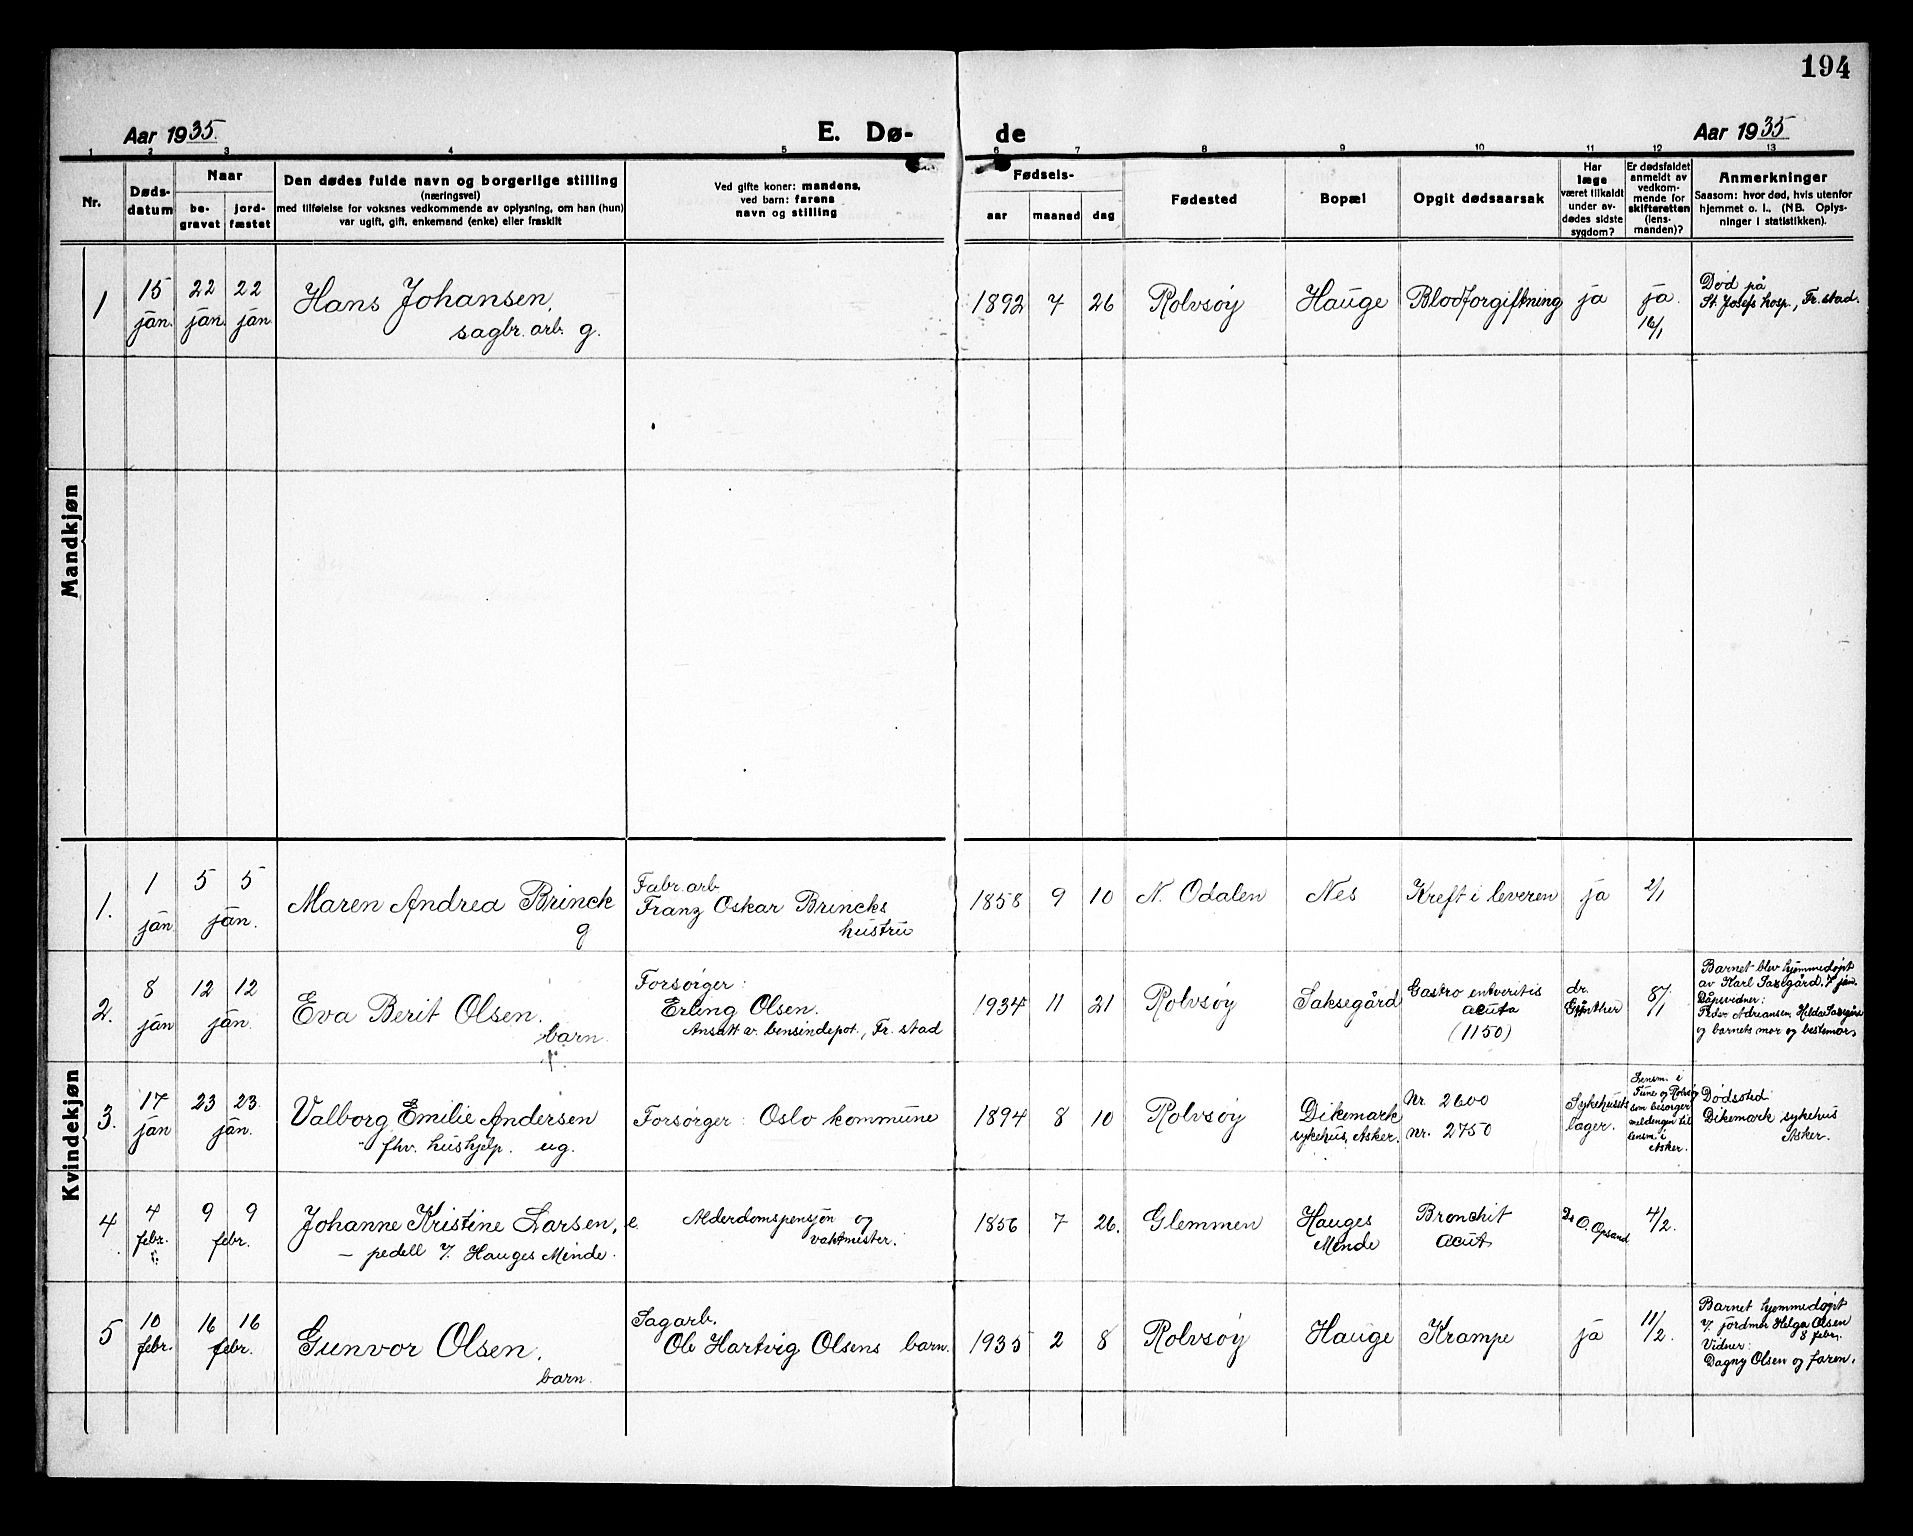 194
Aar 1935.
E. Dø-
de
Aar 1935
1 2 3 4 5 6 7 8 9 10 11 12 13
Nr.
Døds-
datum
Naar
be-
gravet
jord-
fæstet
Den dødes fulde navn og borgerlige stilling
(næringsvei)
med tilføielse for voksnes vedkommende av oplysning, om han (hun)
var ugift, gift, enkemand (enke) eller fraskilt
Ved gifte koner: mandens,
ved barn: farens
navn og stilling
Fødsels-
aar maaned dag
Fødested
Bopæl
Opgit dødsaarsak
Har
læge
været tilkaldt
under av-
dødes sidste
sygdom?
Er dødsfaldet
anmeldt av
vedkom-
mende for
skifteretten
(lens-
manden)?
Anmerkninger
Saasom: hvor død, hvis utenfor
hjemmet o. l., (NB. Oplys-
ninger i statistikken).
Mandkjøn
1
15
jan.
22
jan.
22
jan.
Hans Johansen,
sagbr. arb. g.
1892 7 26
Rolvsøy
Hauge
Blodforgiftning
ja
ja.
16/1
Død på
St. Josefs hosp., Fr.stad.
Kvindekjøn
1.
1
jan
5 5
jan.
Maren Andrea Brinck
g
Fabr. arb
Franz Oskar Brincks
hustru
1858 9 10
N. Odalen
Nes
Kreft i leveren
ja
2/1
2.
8
jan
12 12
jan.
Eva Berit Olsen.
barn.
Forsørger:
Erling Olsen.
Ansatt v. bensindepot., Fr. stad
1934 11 21
Rolvsøy
Saksegård
Gastro entveritis
acuta
(1150)
dr.
Günther
8/1
Barnet blev hjemmedøpt
av Karl Saxegård. 7 jan.
Dåpsvidner:
Pedr. Adriansen, Hilda Saxegård
og barnets mor og bestemor.
3.
17
jan
23 23.
jan.
Valborg Emilie Andersen
fhv. hushjelp. ug.
Forsørger: Oslo kommune
1894 8 10
Rolvsøy
Dikemark
sykehus, Asker.
Nr. 2600
nr. 2750
Sykehusets
læger.
Lensm. i
Tune og Rolvsøy
som besørger
meldingen til
lensm. i
Asker.
Dødssted
Dikemark sykehus
Asker.
4.
4
febr.
9 9
febr.
Johanne Kristine Larsen, e.
– pedell v. Hauges Minde.
Alderdomspensjon og
vaktmester.
1856 7 26.
Glemmen
Hauges
Minde
Bronchit
acut
Dr O. Opsand
4/2.
5
10
febr.
16 16
febr.
Gunvor Olsen.
barn.
Sagarb.
Ole Hartvig Olsens barn.
1935 2 8
Rolvsøy
Hauge
Krampe
ja
11/2.
Barnet hjemmedøpt
v. jordmor Helga Olsen
8 febr.
Vidner:
Dagny Olsen og faren.